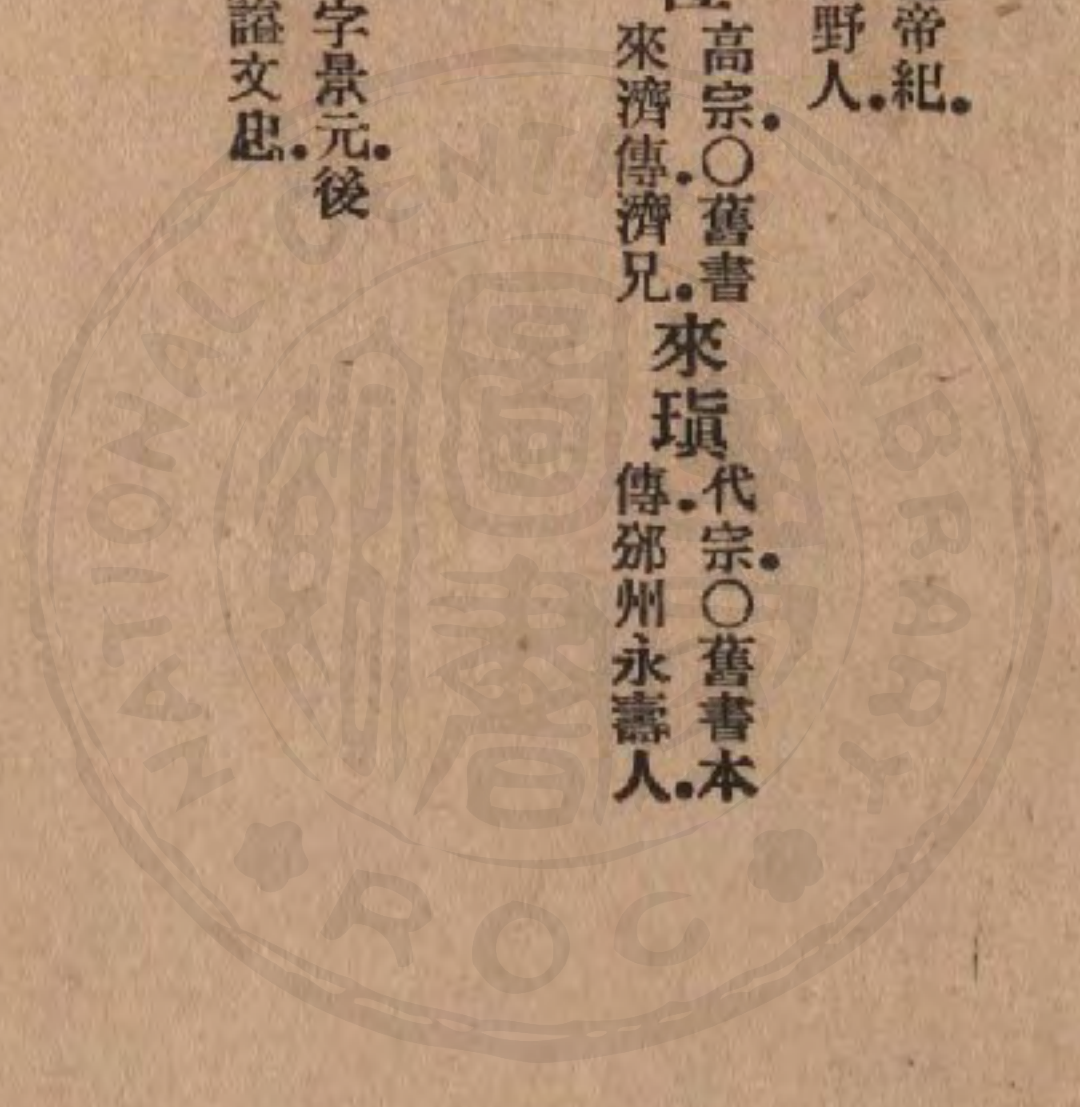 帝紀。
野人。
高宗。〇舊書
來濟傳。濟兄。
來瑱
代宗。〇舊書本
傳。邠州永壽人。
字景元。後
諡文忠。
圖書
NATIONAL CENTRAL LIBRARY
ROC